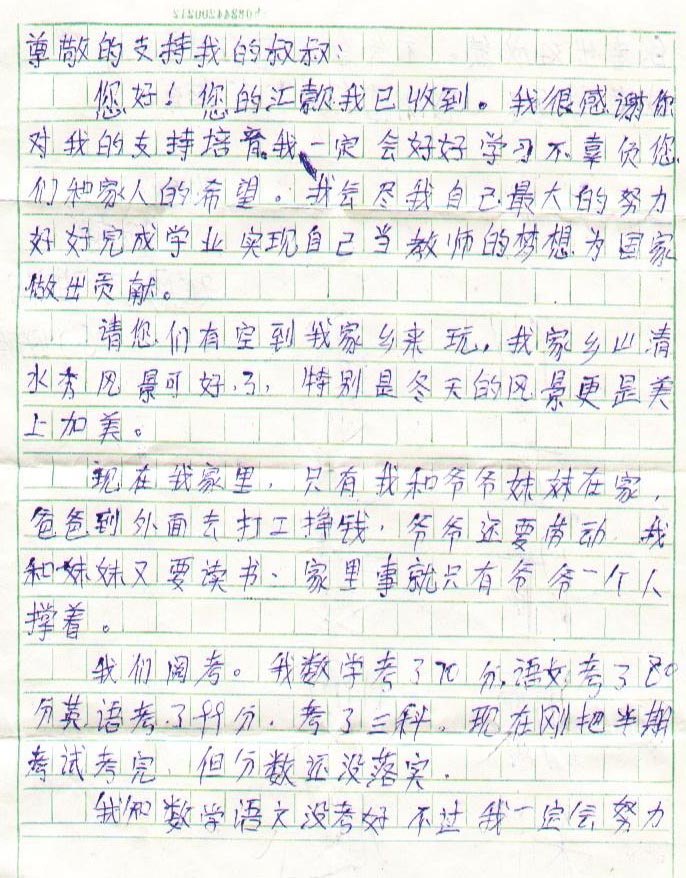 尊敬的支持我的叔叔：
您好！您的汇款我已收到。我很感谢你
对我的支持培育。我一定会好好学习不辜负您
们和家人的希望。我会尽我自己最大的努力
好好完成学业实现自己当教师的梦想为国家
做出贡献。
请您们有空到我家乡来玩，我家乡山清
水秀风景可好了，特别是冬天的风景更是美
上加美。
现在我家里，只有我和爷爷妹妹在家，
爸爸到外面去打工挣钱，爷爷还要劳动我
和妹妹又要读书、家里事就只有爷爷一个人
撑着。
我们阅考。我数学考了70分，语文考了80
分英语考了99分，考了三科，现在刚把半期
考试考完，但分数还没落实。
我知数学语文没考好不过我一定会努力